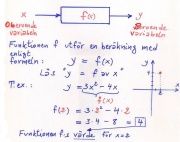 x → f(x) → y
Oberoende variabeln
Beroende variabeln
Funktionen f utför en beräkning med
enligt
formeln: y = f(x)
Läs "y = f av x"
T.ex.: y = 3x² - 4x
f(x)
f(2) = 3·2² - 4·2
= 3·4 - 8 = 4
Funktionens värde för x=2